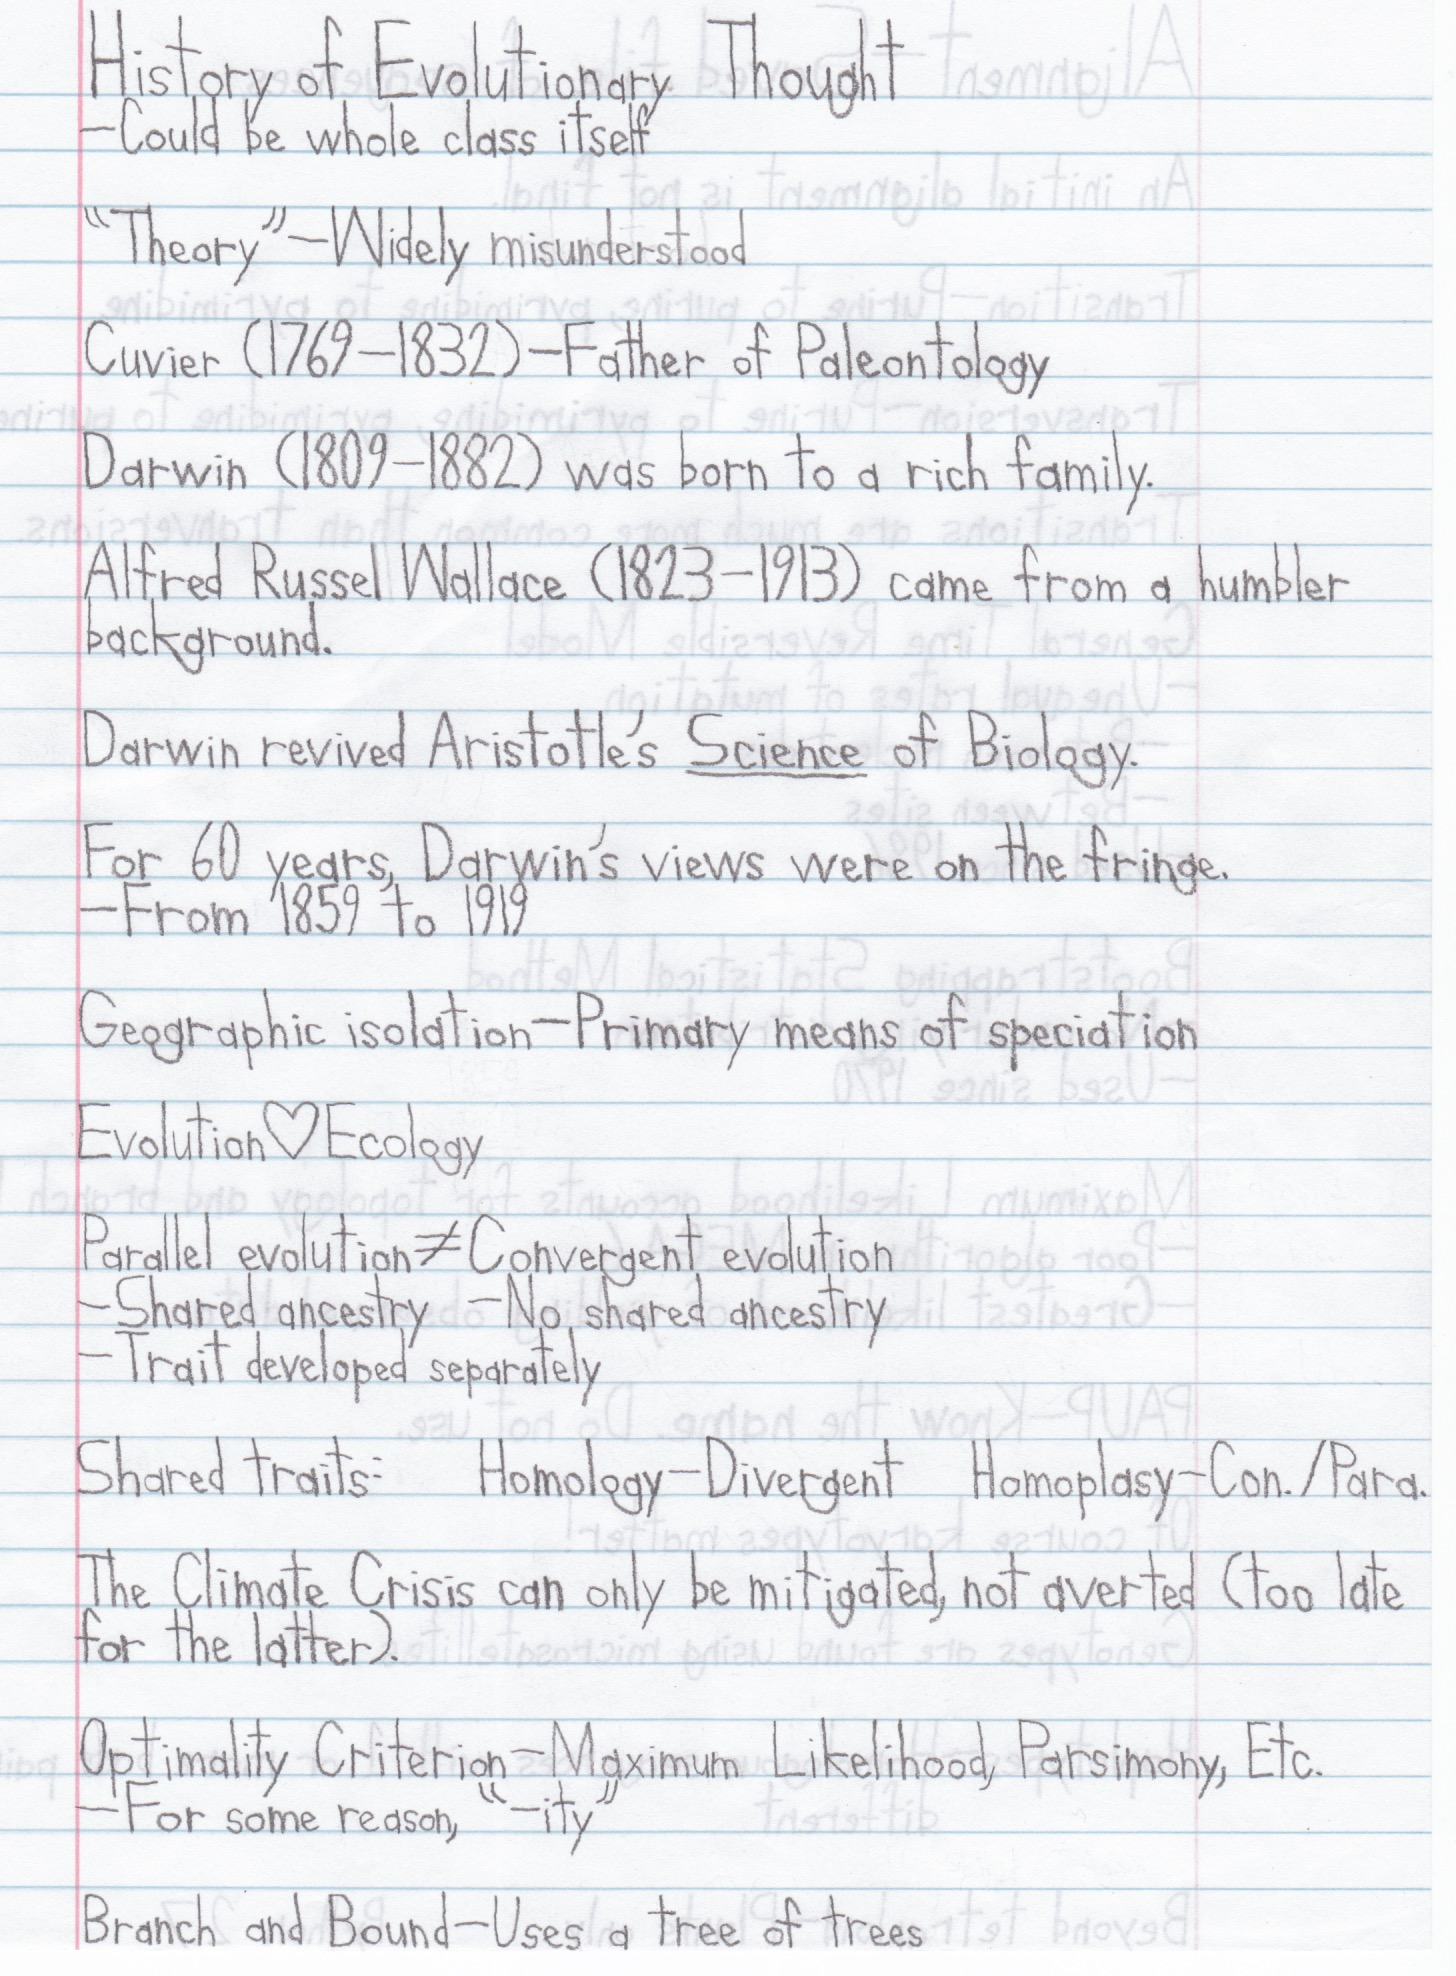 History of Evolutionary Thought
-Could be whole class itself
"Theory"-Widely misunderstood
Cuvier (1769-1832)-Father of Paleontology
Darwin (1809-1882) was born to a rich family.
Alfred Russel Wallace (1823-1913) came from a humbler
background.
Darwin revived Aristotle's Science of Biology.
For 60 years, Darwin's views were on the fringe.
-From 1859 to 1919
Geographic isolation-Primary means of speciation
Evolution♡Ecology
Parallel evolution≠Convergent evolution
-Shared ancestry -No shared ancestry
-Trait developed separately
Shared traits: Homology-Divergent Homoplasy-Con./Para.
The Climate Crisis can only be mitigated, not averted (too late
for the latter).
Optimality Criterion-Maximum Likelihood, Parsimony, Etc.
-For some reason, "-ity"
Branch and Bound-Uses a tree of trees